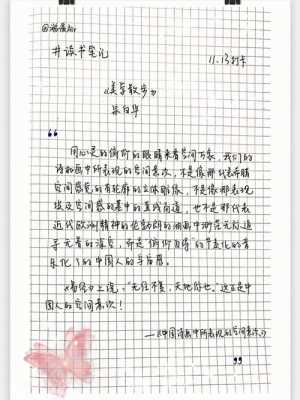 #读书笔记
11.13打卡
《美学散步》
宗白华
“
用心灵的俯仰的眼睛来看空间万象，我们的
诗和画中所表现的空间意识，不是像那代表希腊
空间感觉的有轮廓的立体雕像，不是像那表现
埃及空间感的墓中的直线甬道，也不是那代表
近代欧洲精神的伦勃朗的油画中渺茫无际追
寻无着的深空，而是“俯仰自得”的节奏化的音
乐化了的中国人的宇宙感。
《易经》上说：“无往不复，天地际也。”这正是中
国人的空间意识！
——《中国诗画中所表现的空间意识》
”